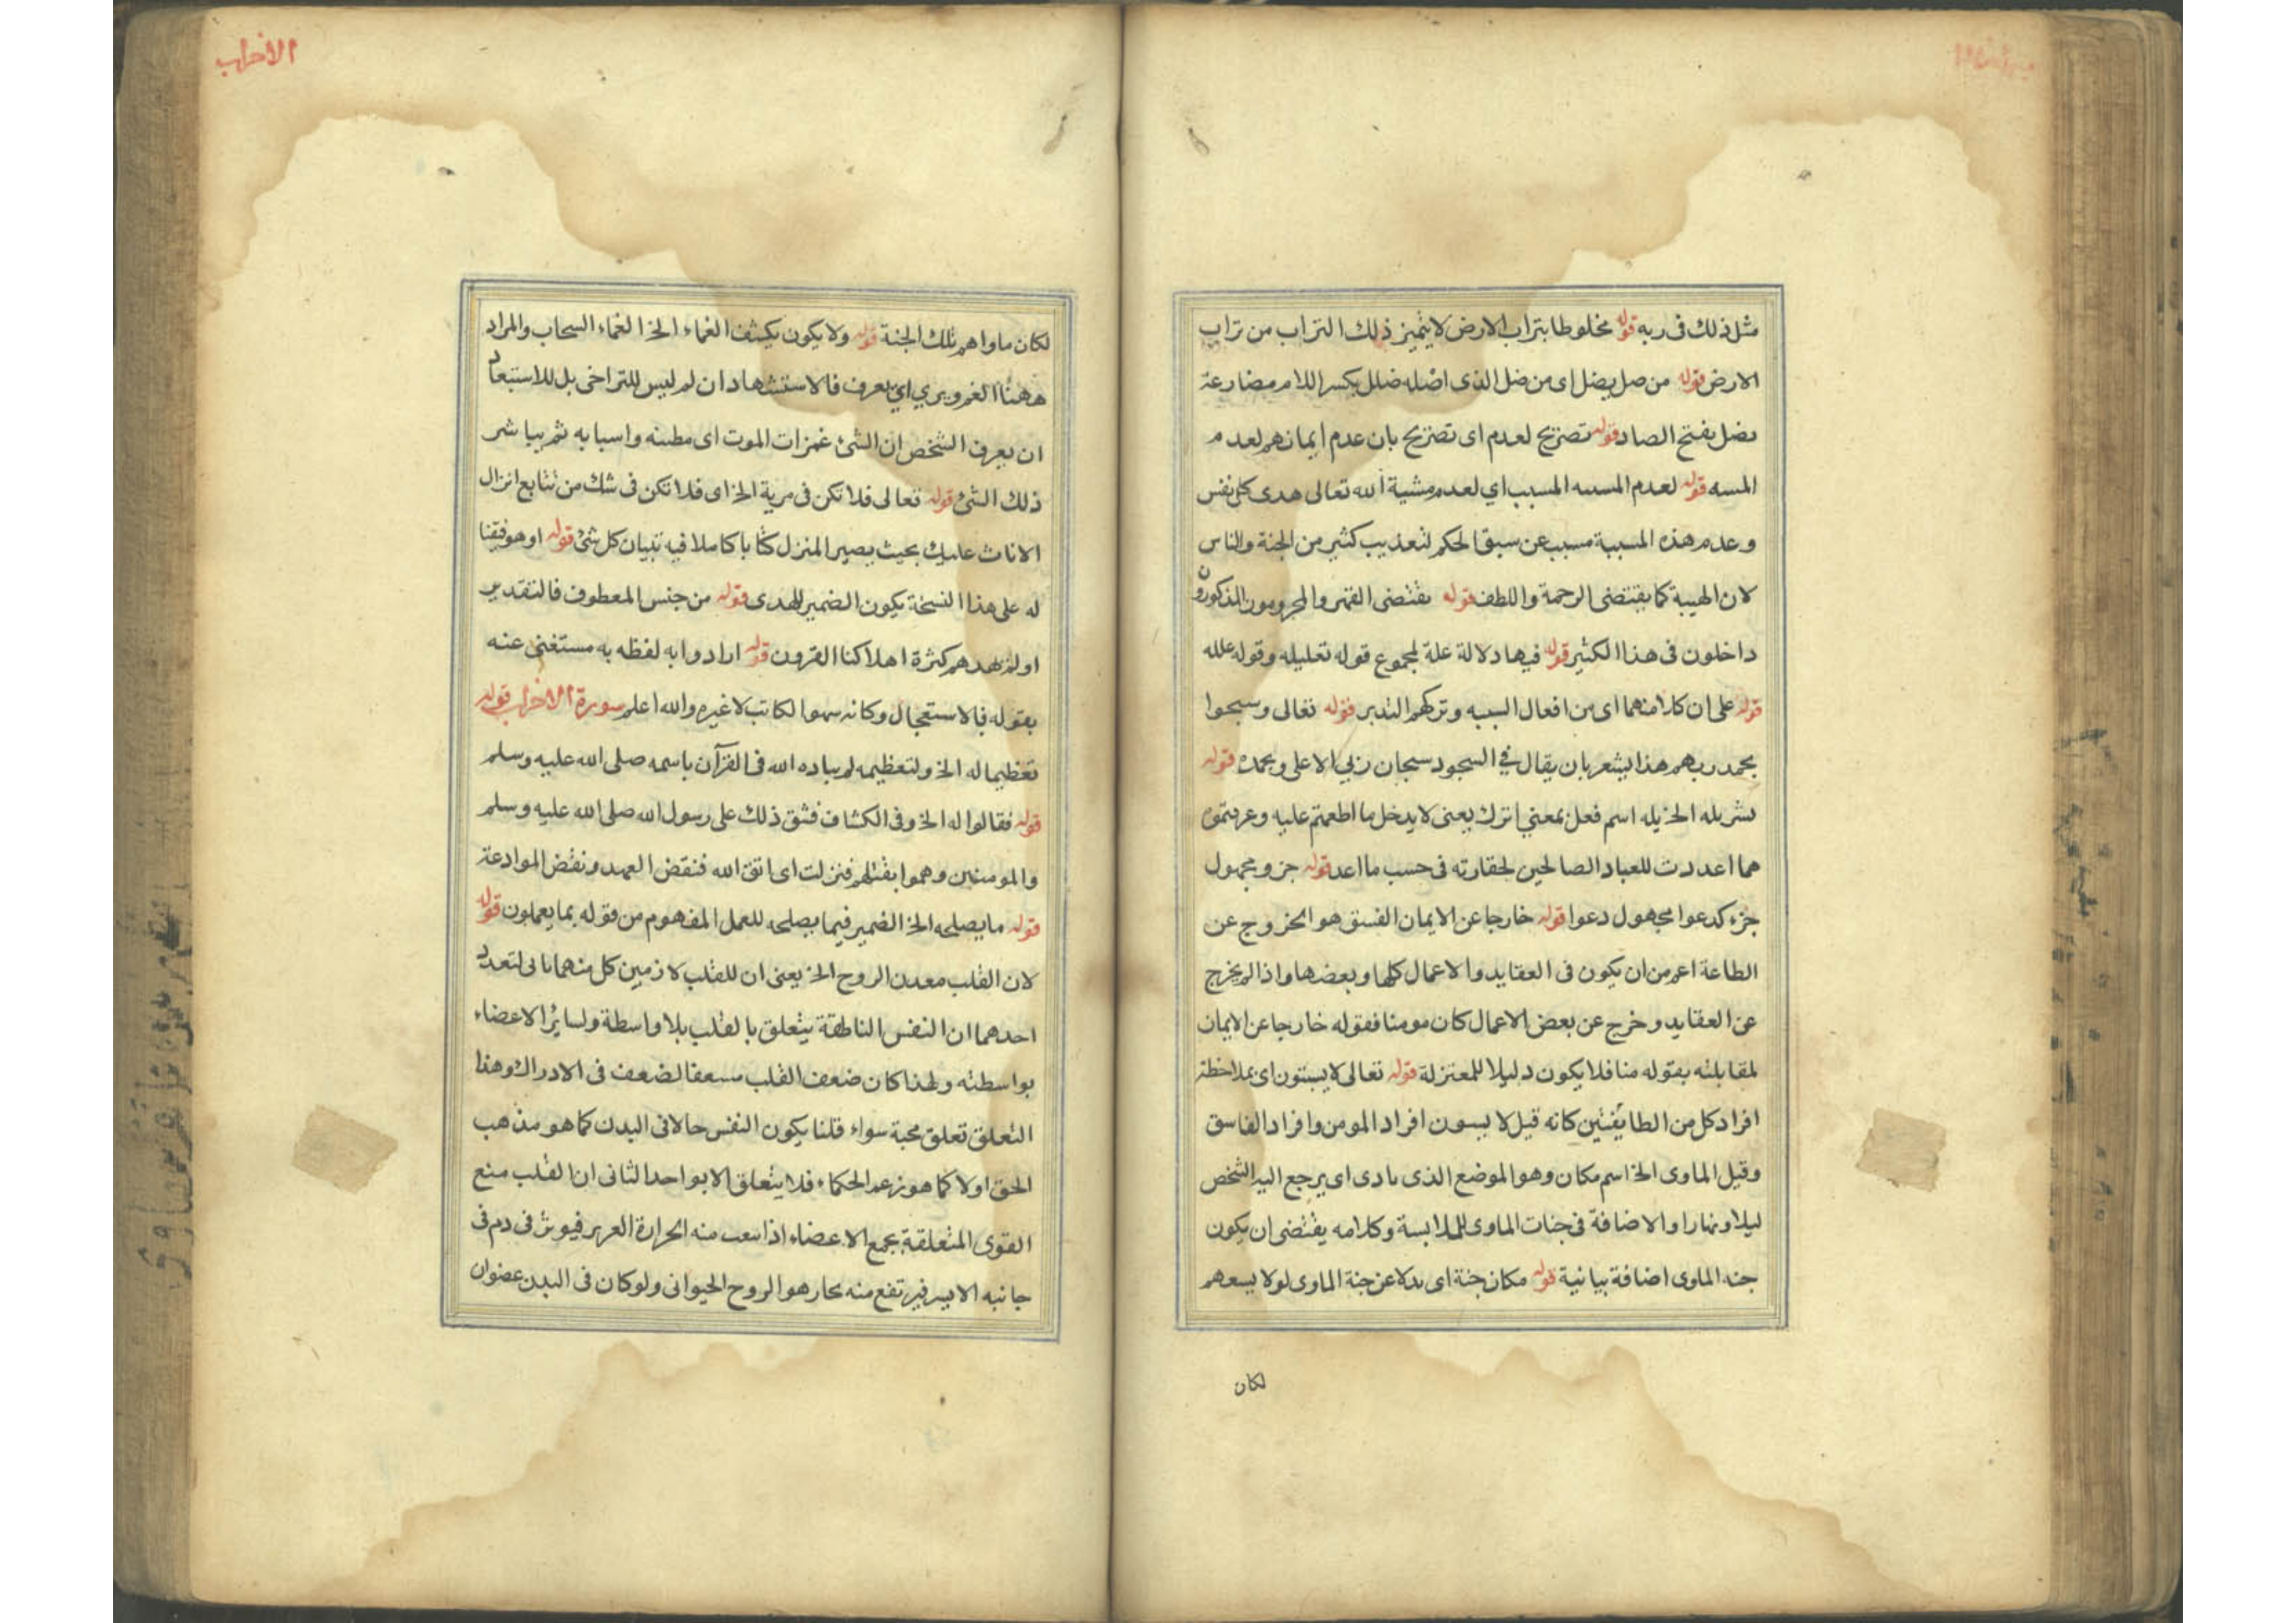 مثل ذلك فى ربه قوله مخلوطا بتراب الارض لا يتميز ذلك التراب من تراب
الارض قوله من صل يضل اى من ضل الذى اصله ضلل بكسر اللام مضارعة
يضل بفتح الصاد قوله تصريح لعدم اى تصريح بان عدم ايمانهم لعدم
المسه قوله لعدم المسسه المسبب اي لعدم مشية الله تعالى هدى كل نفس
وعدم هذه المسببة مسبب عن سبق الحكم لتعذيب كثير من الجنة والناس
لان الهيبة كما يقتضى الرحمة واللطف قوله يقتضى القهر والمجرمون المذكورون
داخلون فى هذا الكثير قوله فيها دلالة علة لمجموع قوله تعليله وقوله علله
قوله على ان كلا منهما اى من افعال السببه وتركهم التدبر قوله تعالى وسبحوا
بحمد ربهم هذا يشعر بان يقال في السجود سبحان ربي الاعلى وبحمده قوله
بشر بله الخ بله اسم فعل بمعني اترك يعنى لا يدخل ما اطعمتم عليه وعرفتموه
مما اعددت للعباد الصالحين لحقارته فى حسب ما اعد قوله جزو مجهول
جزء كدعوا مجهول دعوا قوله خارجا عن الايمان الفسق هو الخروج عن
الطاعة اعم من ان يكون فى العقايد والاعمال كلها وبعضها واذا لم يخرج
عن العقايد وخرج عن بعض الاعمال كان مومنا فقوله خارجا عن الايمان
لمقابلته بقوله منا فلا يكون دليلا للمعتزلة قوله تعالى لا يستون اى بملاحظة
افراد كل من الطايفتين كانه قيل لا يسون افراد المومن وافراد الفاسق
وقيل الماوى الخ اسم مكان وهو الموضع الذى يادى اى يرجع اليه الشخص
ليلا ونهارا والاضافة فى جنات الماوى للملابسة وكلامه يقتضى ان يكون
جنه الماوى اضافة بيانية قوله مكان جنة اى بدلا عن جنة الماوى لولا يسعهم
لكان
الاحزاب
لكان ماواهم تلك الجنة قوله ولا يكون يكشف الغماء الخ الغماء السحاب والمراد
ههنا الغم ويرى اي يعرف فالاستشهاد ان لم ليس للتراخى بل للاستبعاد
ان يعرف الشخص ان الشئ غمزات الموت اى مطسه واسبابه ثم يباشر
ذلك الشئ قوله تعالى فلا تكن فى مرية الخ اى فلا تكن فى شك من تتابع انزال
الاناث عليك بحيث يصير المنزل كتابا كاملا فيه تبيان كل شئ قوله اوهو فقنا
له على هذا النسخة يكون الضمير للهدى قوله من جنس المعطوف فالتقدير
اولم يهدهم كثرة اهلاكنا القرون قوله ارادوا به لفظه به مستغنى عنه
بقوله فالاستعجال وكانه سهوا لكاتب لا غيره والله اعلم سورة الاحزاب قوله
تعظيما له الخ ولتعظيمه لم يناده الله فى القرآن باسمه صلى الله عليه وسلم
قوله فقالوا له الخ وفى الكشاف فشق ذلك على رسول الله صلى الله عليه وسلم
والمومنين وهموا بقتلهم فنزلت اى اتق الله فنقض العهد ونقض الموادعة
قوله ما يصلحه الخ الضمير فيما يصلحه للعمل المفهوم من قوله بما يعملون قوله
لان القلب معدن الروح الخ يعنى ان للقلب لازمين كل منهما يابى لتعدد
احدهما ان النفس الناطقة يتعلق بالقلب بلا واسطة ولساير الاعضاء
بواسطته ولهذا كان ضعف القلب مسعفا لضعف فى الادراك وهذا
التعلق تعلق محبة سواء قلنا يكون النفس حالا فى البدن كما هو مذهب
الحق اولا كما هو زعم الحكماء فلا يتعلق الا بواحد الثانى ان القلب منبع
القوى المتعلقة بجمع الاعضاء اذا سعب منه الحرارة العرير فيوثر فى دم فى
جانبه الايسر فيرتفع منه بخار هو الروح الحيوانى ولو كان فى البدن عضوان